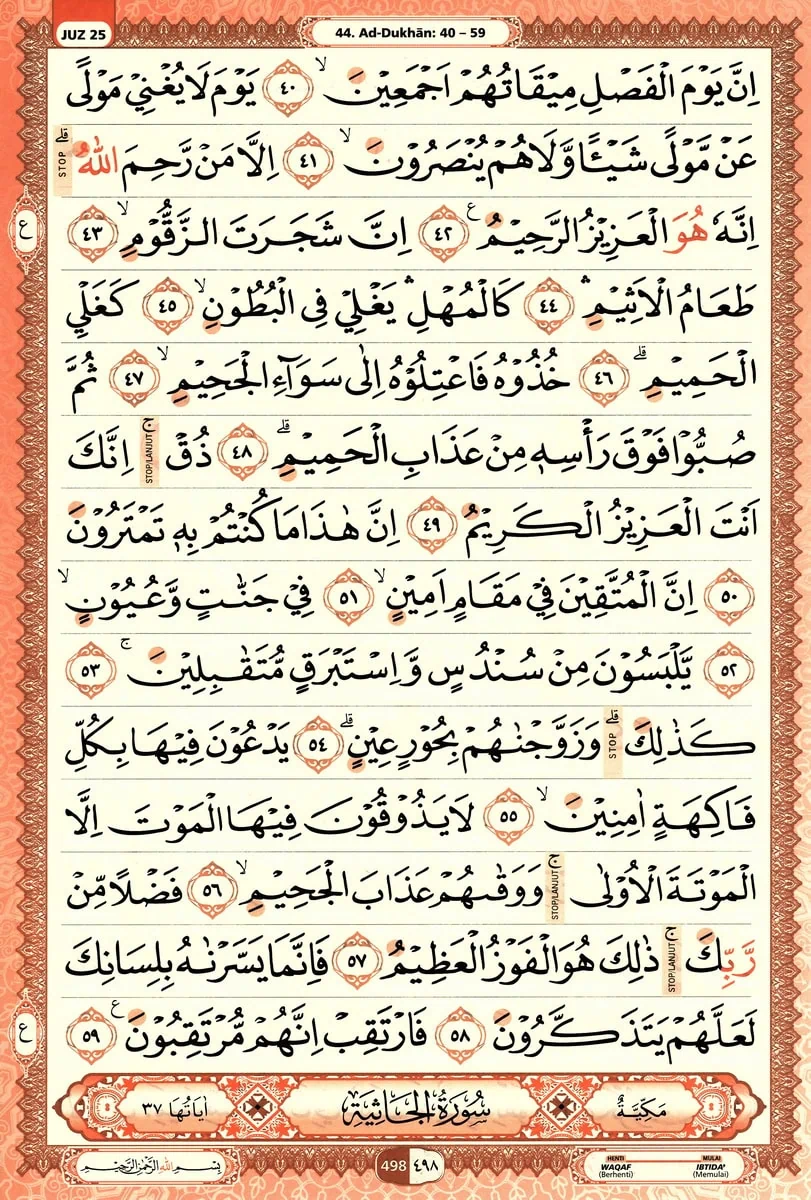 JUZ 25
44. Ad-Dukhān: 40 – 59
اِنَّ يَوْمَ الْفَصْلِ مِيْقَاتُهُمْ اَجْمَعِيْنَ ۙ ٤٠ يَوْمَ لَا يُغْنِيْ مَوْلًى
عَنْ مَّوْلًى شَيْـًٔا وَّلَا هُمْ يُنْصَرُوْنَ ۙ ٤١ اِلَّا مَنْ رَّحِمَ اللّٰهُ ۗ STOP
اِنَّهٗ هُوَ الْعَزِيْزُ الرَّحِيْمُ ࣖ ٤٢ اِنَّ شَجَرَتَ الزَّقُّوْمِ ۙ ٤٣
ع
طَعَامُ الْاَثِيْمِ ۛ ٤٤ كَالْمُهْلِ ۛ يَغْلِيْ فِى الْبُطُوْنِ ۙ ٤٥ كَغَلْيِ
الْحَمِيْمِ ۗ ٤٦ خُذُوْهُ فَاعْتِلُوْهُ اِلٰى سَوَاۤءِ الْجَحِيْمِ ۙ ٤٧ ثُمَّ
صُبُّوْا فَوْقَ رَأْسِهٖ مِنْ عَذَابِ الْحَمِيْمِ ۗ ٤٨ ذُقْ ۚ STOP/LANJUT اِنَّكَ
اَنْتَ الْعَزِيْزُ الْكَرِيْمُ ٤٩ اِنَّ هٰذَا مَا كُنْتُمْ بِهٖ تَمْتَرُوْنَ
٥٠ اِنَّ الْمُتَّقِيْنَ فِيْ مَقَامٍ اَمِيْنٍ ۙ ٥١ فِيْ جَنّٰتٍ وَّعُيُوْنٍ ۙ
٥٢ يَّلْبَسُوْنَ مِنْ سُنْدُسٍ وَّاِسْتَبْرَقٍ مُّتَقٰبِلِيْنَ ۚ ٥٣
كَذٰلِكَ ۗ STOP وَزَوَّجْنٰهُمْ بِحُوْرٍ عِيْنٍ ۗ ٥٤ يَدْعُوْنَ فِيْهَا بِكُلِّ
فَاكِهَةٍ اٰمِنِيْنَ ۙ ٥٥ لَا يَذُوْقُوْنَ فِيْهَا الْمَوْتَ اِلَّا
الْمَوْتَةَ الْاُوْلٰى ۚ STOP/LANJUT وَوَقٰىهُمْ عَذَابَ الْجَحِيْمِ ۙ ٥٦ فَضْلًا مِّنْ
رَّبِّكَ ۚ STOP/LANJUT ذٰلِكَ هُوَ الْفَوْزُ الْعَظِيْمُ ٥٧ فَاِنَّمَا يَسَّرْنٰهُ بِلِسَانِكَ
لَعَلَّهُمْ يَتَذَكَّرُوْنَ ٥٨ فَارْتَقِبْ اِنَّهُمْ مُّرْتَقِبُوْنَ ࣖ ٥٩
ع
مَكِّيَّةٌ سُوْرَةُ الْجَاثِيَةِ اٰيَاتُهَا ٣٧
بِسْمِ اللّٰهِ الرَّحْمٰنِ الرَّحِيْمِ
498 ٤٩٨
HENTI WAQAF (Berhenti)
MULAI IBTIDA' (Memulai)